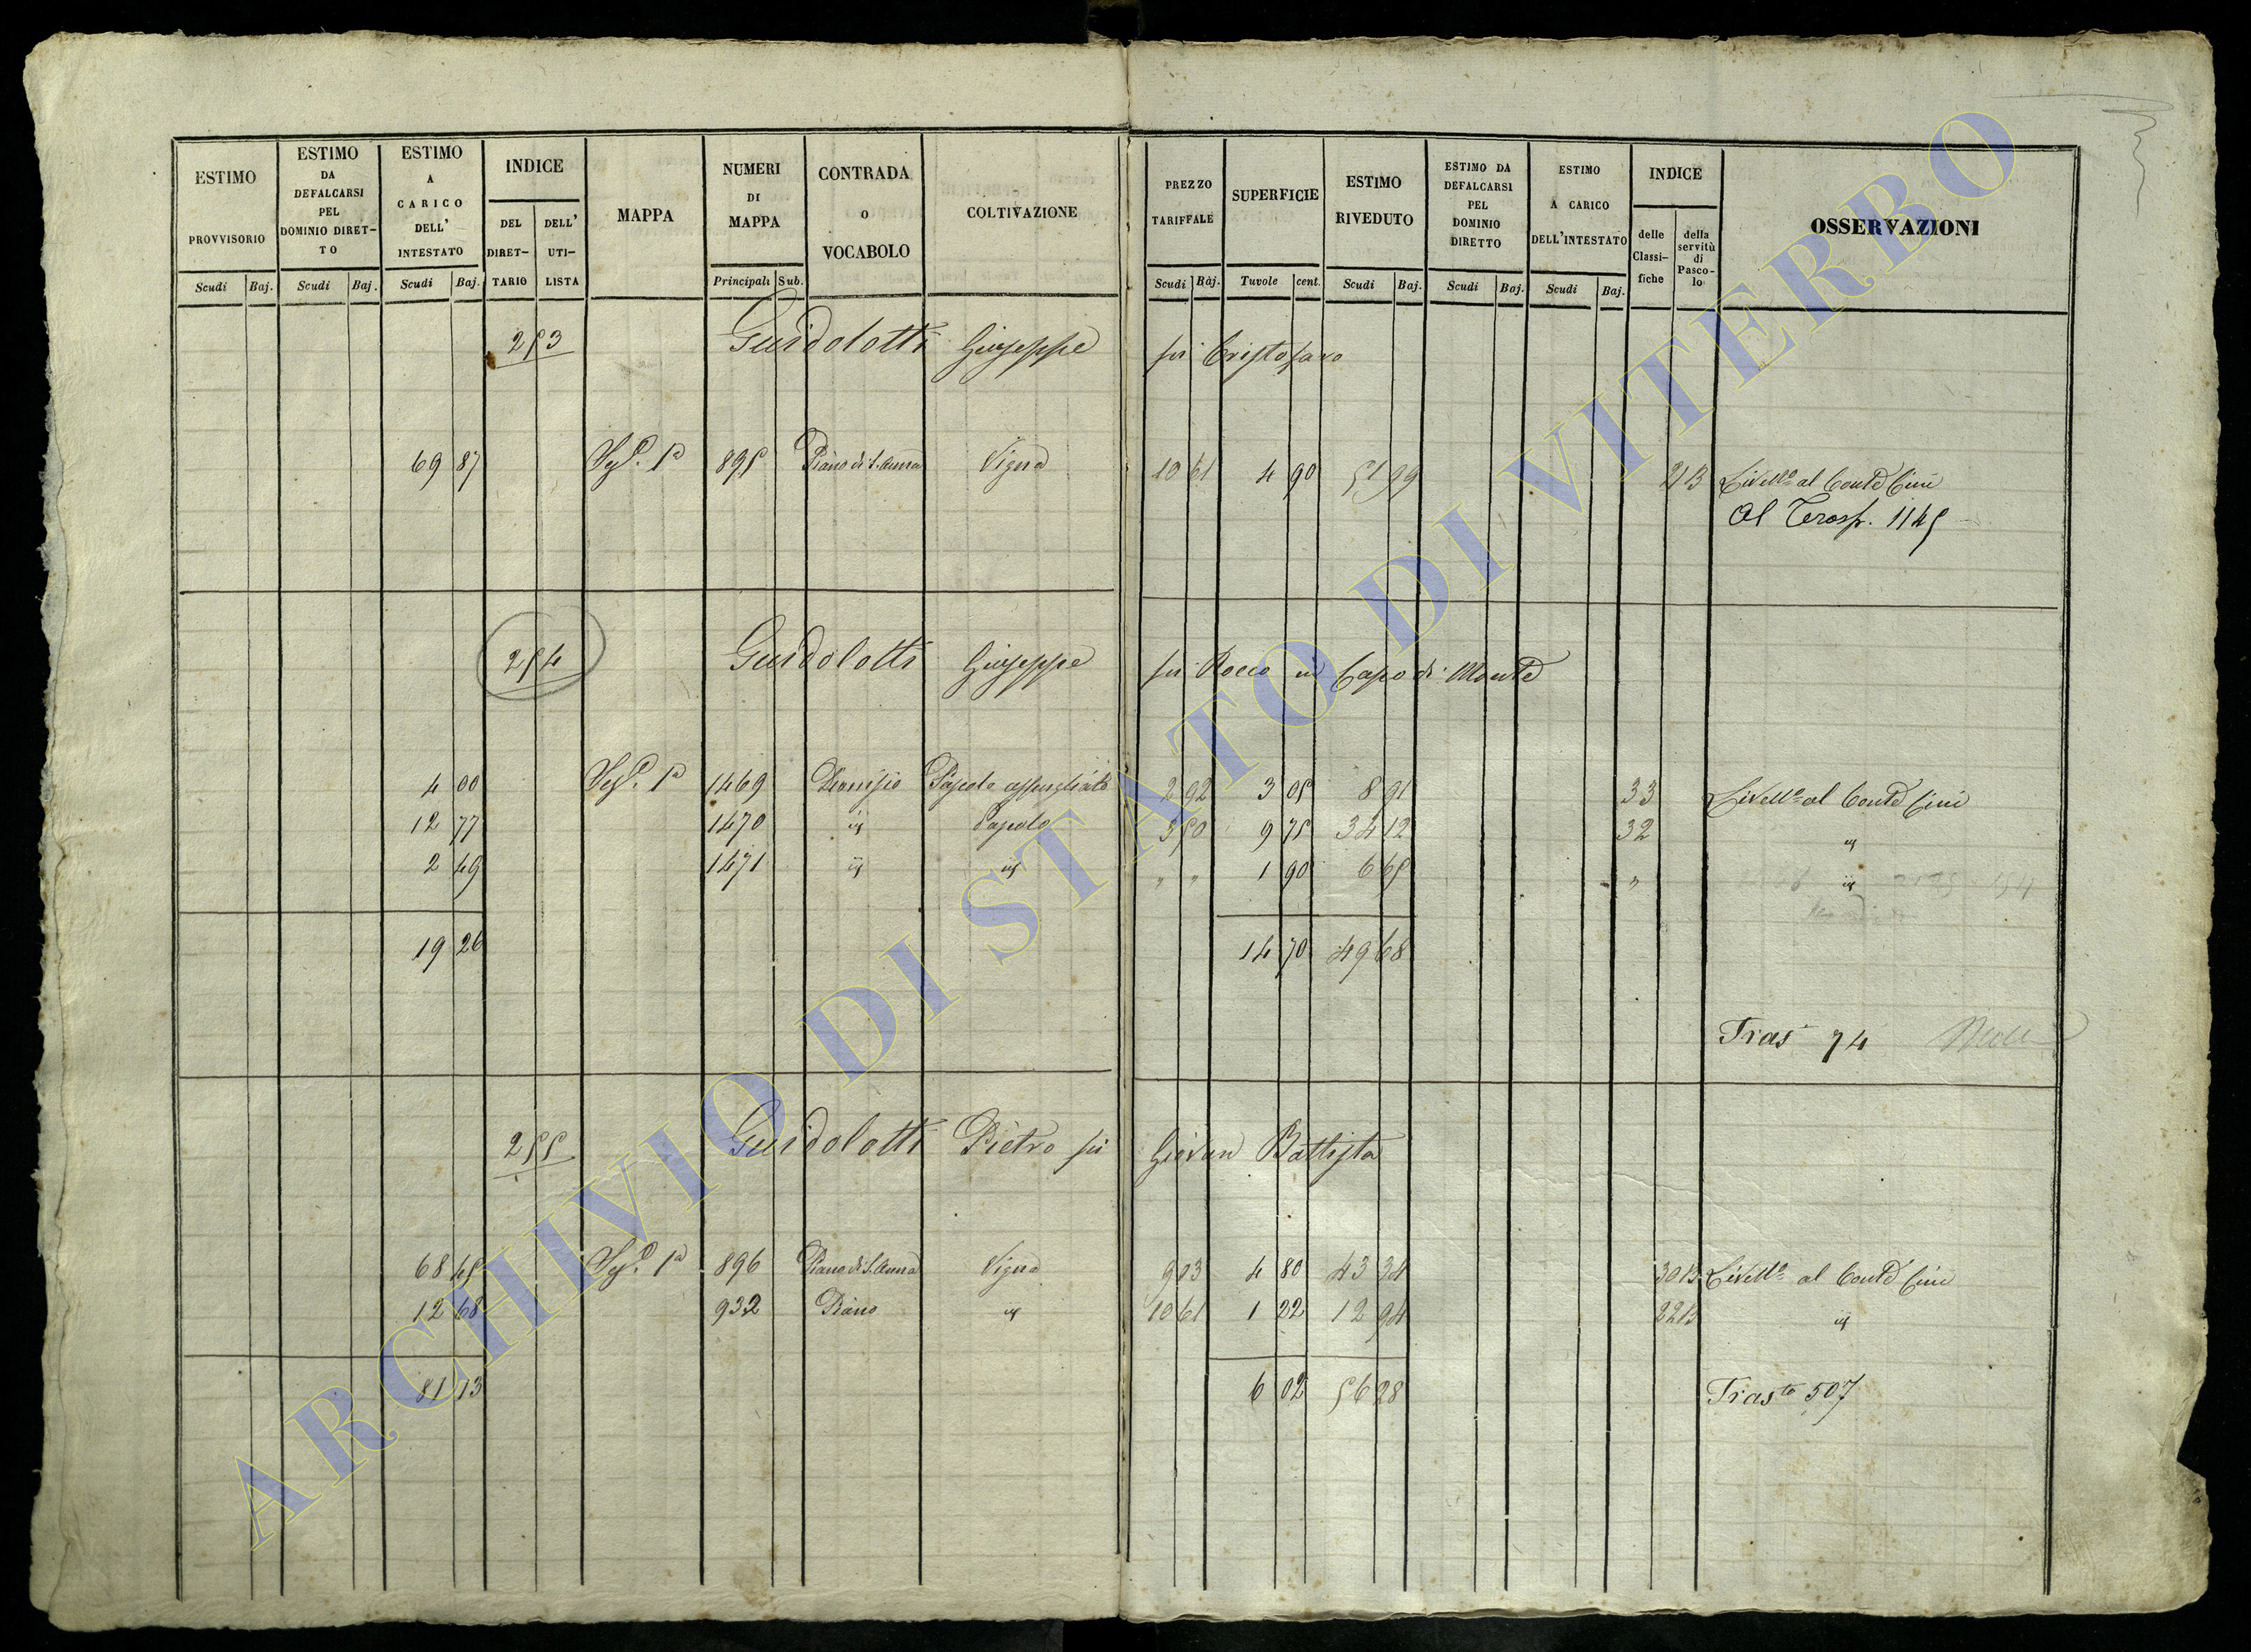 ESTIMO PROVVISORIO Scudi Baj.
ESTIMO DA DEFALCARSI PEL DOMINIO DIRET-TO Scudi Baj.
ESTIMO A CARICO DELL' INTESTATO Scudi Baj.
INDICE DEL DIRET-TARIO DELL' UTI-LISTA
MAPPA
NUMERI DI MAPPA Principali Sub.
CONTRADA O VOCABOLO
COLTIVAZIONE
PREZZO TARIFFALE Scudi Baj.
SUPERFICIE Tavole cent.
ESTIMO RIVEDUTO Scudi Baj.
ESTIMO DA DEFALCARSI PEL DOMINIO DIRETTO Scudi Baj.
ESTIMO A CARICO DELL'INTESTATO Scudi Baj.
INDICE delle Classi-fiche della servitù di Pasco-lo
OSSERVAZIONI
253 Guidolotti Giuseppe fu Cristofaro
69 87 1ª 895 Piano di S. Anna Vigna 10 61 4 90 51 99 21 B Livellº al Conte Cini
Al Trasp. 1145
254 Guidolotti Giuseppe fu Rocco in Capo di Monte
4 00 1ª 1469 Pascolo 2 92 3 05 8 91 33 Livellº al Conte Cini
12 77 1470 id Pascolo 3 50 9 75 34 12 32 id
2 49 1471 id id " " 1 90 6 65 " id
19 26 14 70 49 68
Tras 74
255 Guidolotti Pietro fu Giovan Battista
68 45 1ª 896 Piano di S. Anna Vigna 9 03 4 80 43 34 30 B Livellº al Conte Cini
12 68 932 Piano id 10 61 1 22 12 94 22 B id
81 13 6 02 56 28 Trasto 507
ARCHIVIO DI STATO DI VITERBO